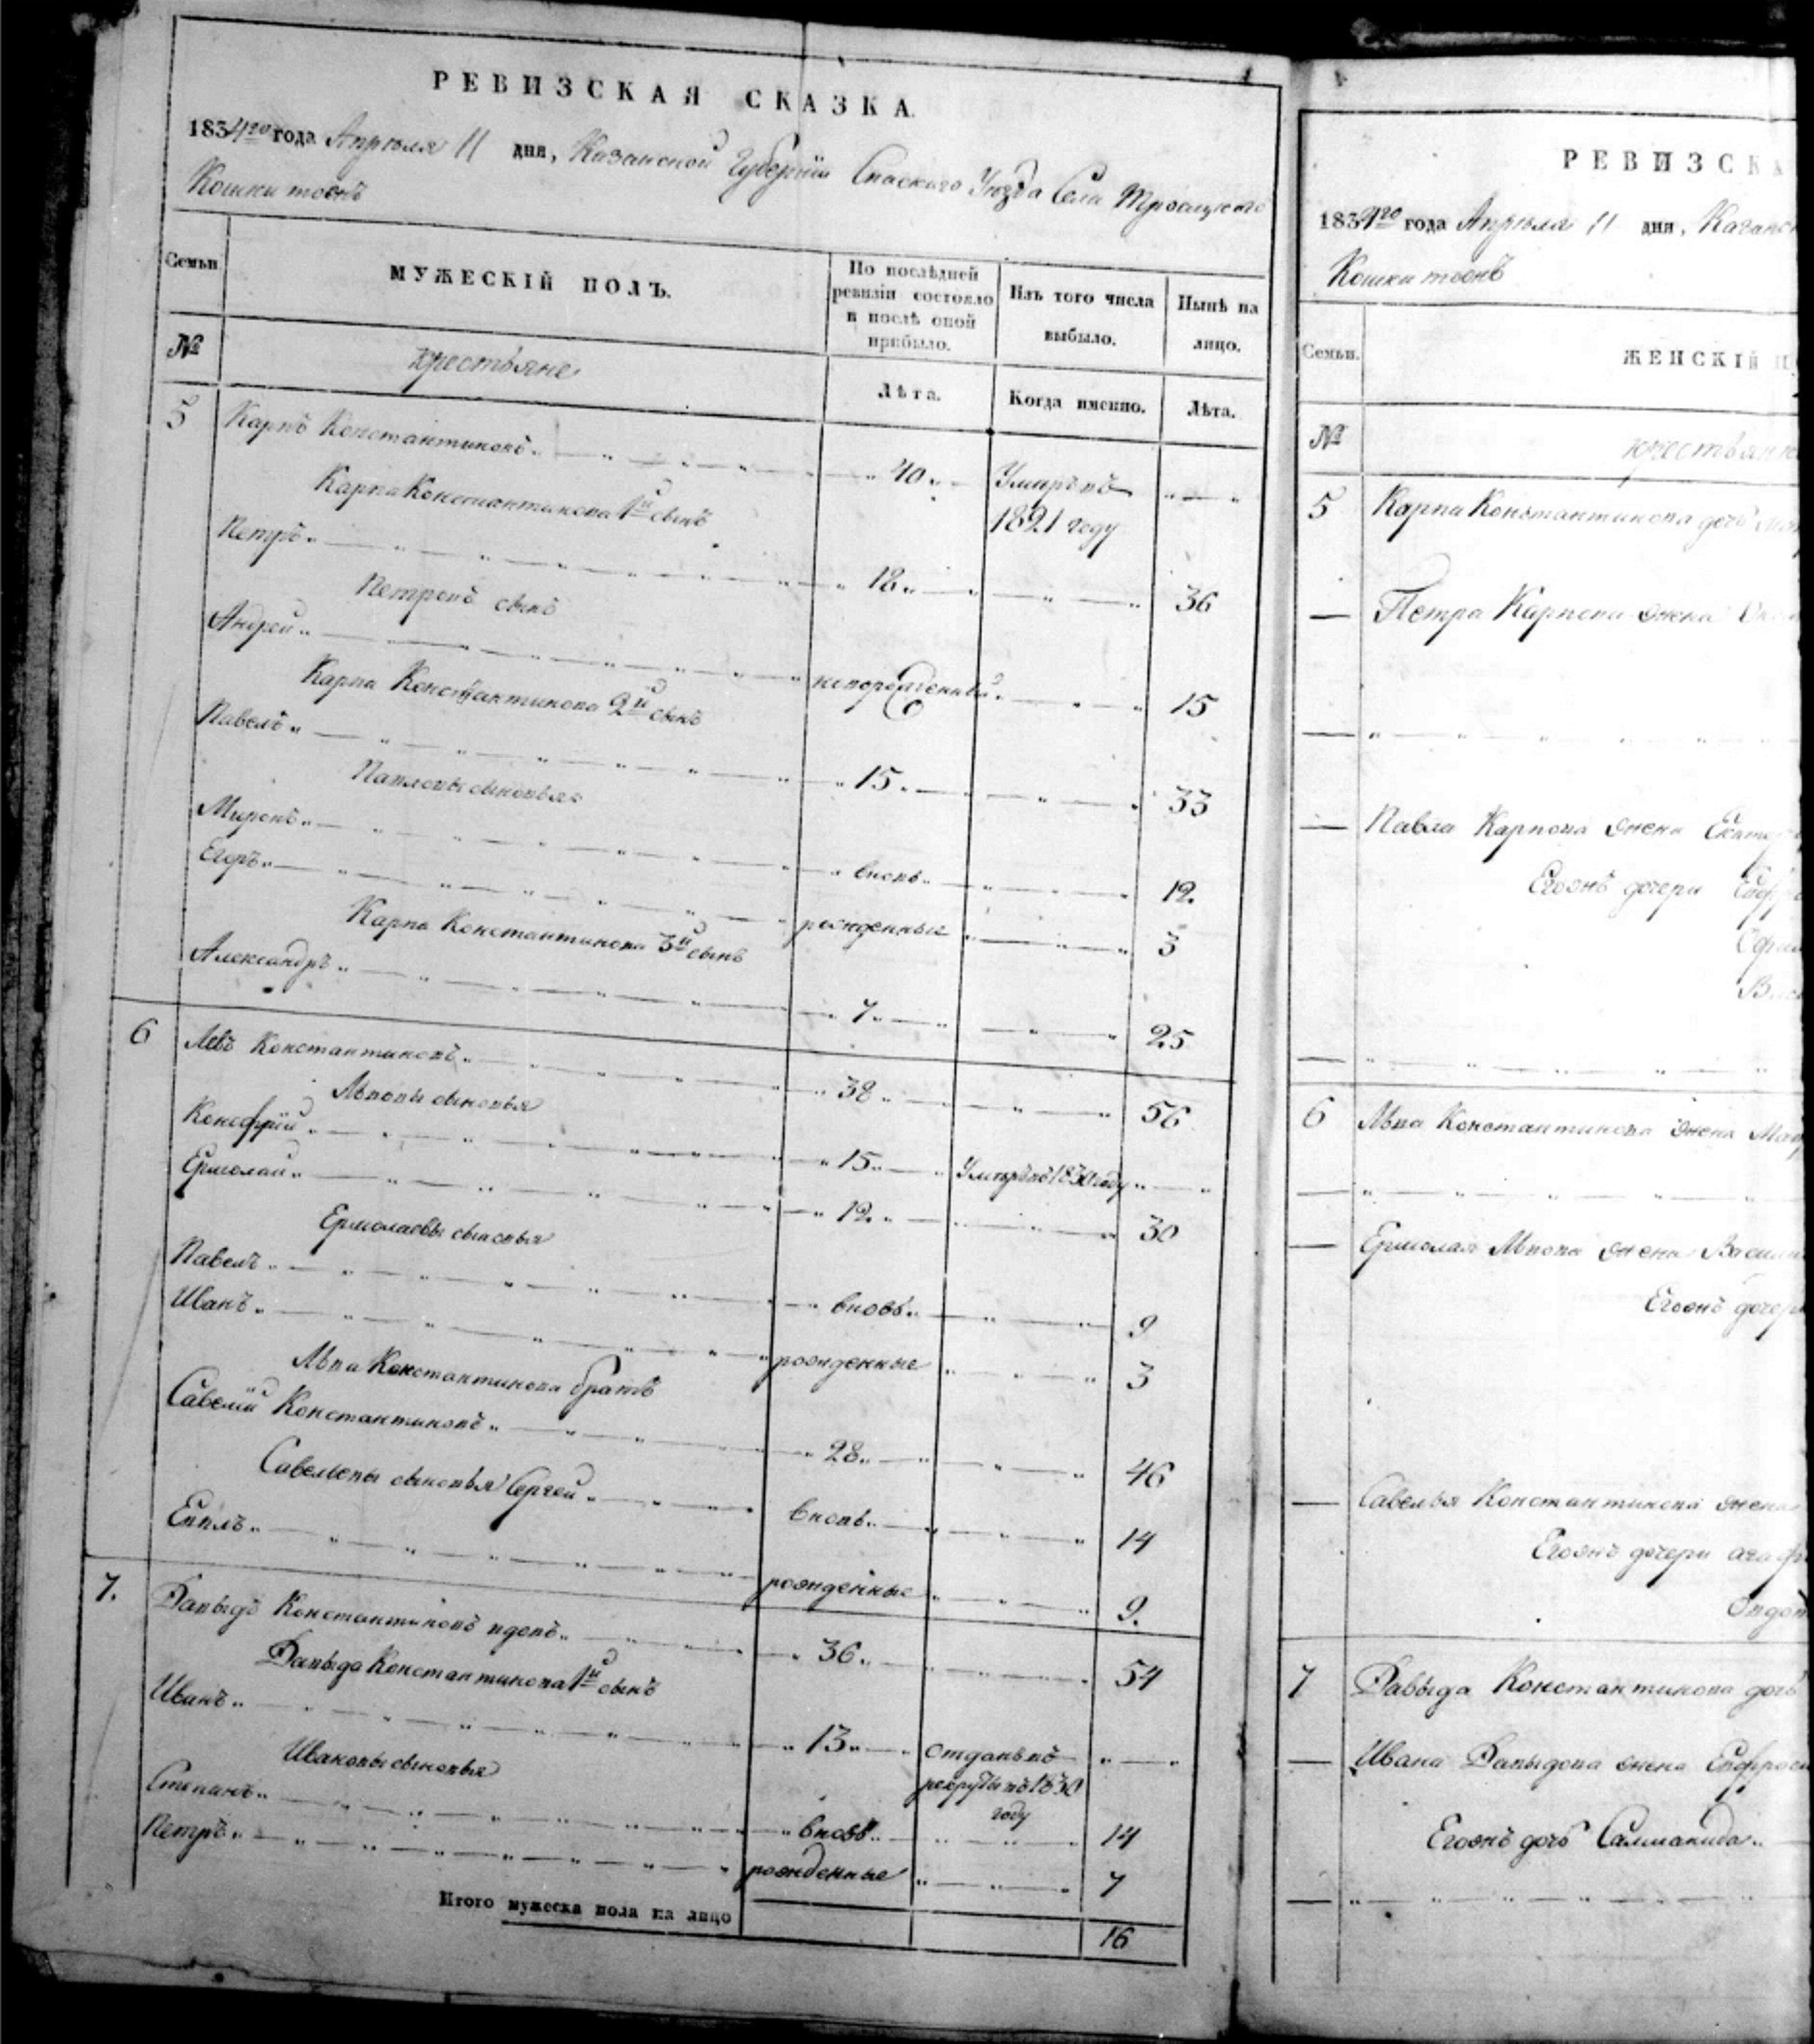 РЕВИЗСКАЯ СКАЗКА.
1834го года Апреля 11 дня, Казанской Губернiи Спаскаго Уезда Села Троицкаго
Кошки тоенъ
Семьи
МУЖЕСКIЙ ПОЛЪ.
По послѣдней ревизiи состояло и послѣ оной прибыло.
Изъ того числа выбыло.
Нынѣ на лицо.
№
крестьяне
Лѣта.
Когда именно.
Лѣта.
5 Карпъ Константиновъ 40 Умеръ въ 1821 году
Карпа Константинова 1й сынъ
Петръ 18 36
Петровъ сынъ
Андрей 15
Карпа Константинова 2й сынъ
Павелъ 15 33
Павловы сыновья
Миронъ вновь 12.
Егоръ рожденные 3
Карпа Константинова 3й сынъ
Александръ 7 25
6 Левъ Константиновъ 38 56
Львовы сыновья
15 Умеръ въ 1830 году
Ермолай 12 30
Ермолаевы сыновья
Павелъ вновь 9
Иванъ рожденные 3
Льва Константинова братъ
Савелiй Константиновъ 28 46
Савельевы сыновья Сергей вновь 14
рожденные 9.
7. Давыдъ Константиновъ вдовъ 36 54
Давыда Константинова 1й сынъ
Иванъ 13 отданъ въ рекруты въ 1830 году
Ивановы сыновья
Степанъ вновь 14
Петръ рожденные 7
Итого мужеска пола на лицо 16
РЕВИЗСКА
1834го года Апреля 11 дня, Казанс
Кошки тоенъ
Семьи.
ЖЕНСКIЙ П
№
крестьянк
5 Карпа Константинова дочь
Петра Карпова жена
Павла Карпова жена Екате
Егоже дочери
6 Льва Константинова жена
Ермолая Львова жена Васили
Егоже дочери
Савелья Константинова жена
Егоже дочери
7 Давыда Константинова дочь
Ивана Давыдова жена
Егоже дочь